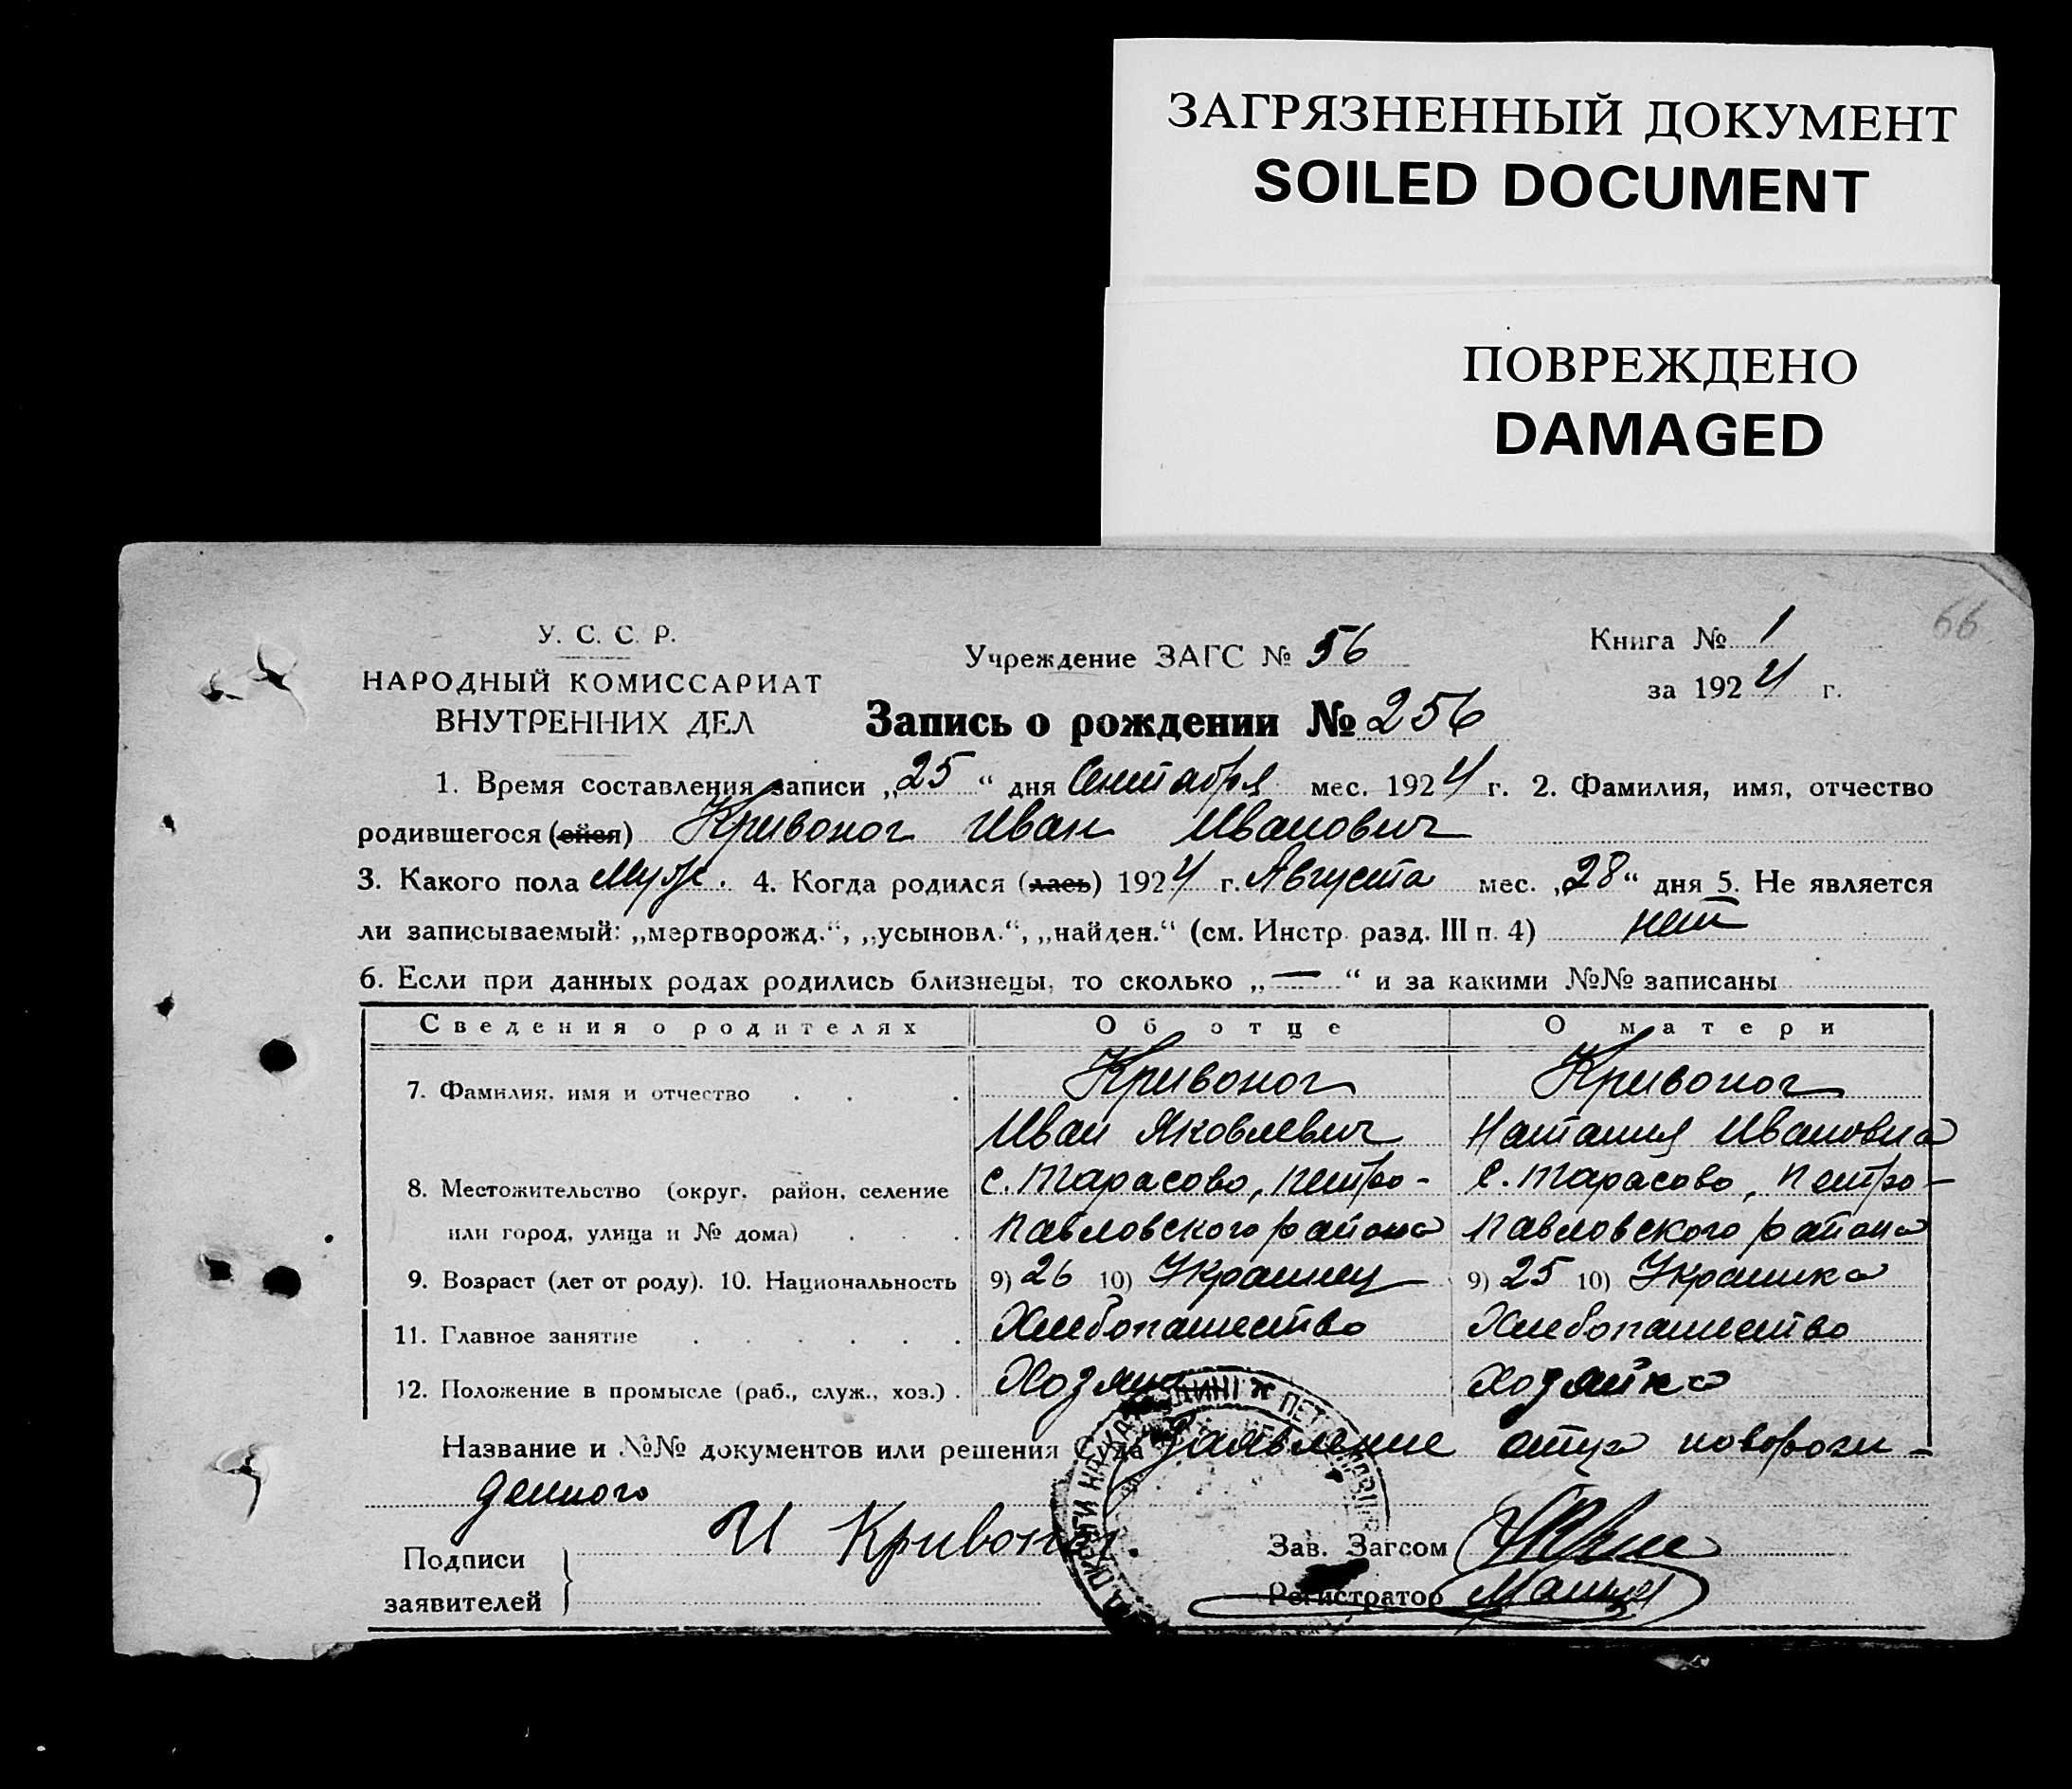 ЗАГРЯЗНЕННЫЙ ДОКУМЕНТ
SOILED DOCUMENT
ПОВРЕЖДЕНО
DAMAGED
66
У. С. С. Р.
НАРОДНЫЙ КОМИССАРИАТ
ВНУТРЕННИХ ДЕЛ
Учреждение ЗАГС № 56
Книга № 1
за 1924 г.
Запись о рождении № 256
1. Время составления записи „25“ дня Сентября мес. 1924 г. 2. Фамилия, имя, отчество
родившегося (ейся) Кривоног Иван Иванович
3. Какого пола Муж. 4. Когда родился (лась) 1924 г. Августа мес. „28“ дня 5. Не является
ли записываемый: „мертворожд.“, „усыновл.“, „найден.“ (см. Инстр. разд. III п. 4) нет
6. Если при данных родах родились близнецы, то сколько „—“ и за какими №№ записаны
Сведения о родителях Об отце О матери
7. Фамилия, имя и отчество . . . Кривоног Кривоног
Иван Яковлевич Наталия Ивановна
8. Местожительство (округ, район, селение с. Тарасово, Петро- с. Тарасово, Петро-
или город, улица и № дома) . . . павловского района павловского района
9. Возраст (лет от роду). 10. Национальность 9) 26 10) Украинец 9) 25 10) Украинка
11. Главное занятие . . . . . Хлебопашество Хлебопашество
12. Положение в промысле (раб., служ., хоз.) . Хозяин Хозяйка
Название и №№ документов или решения Суда Заявление отца новорож-
денного
Подписи
заявителей
И Кривоног
Зав. Загсом
Регистратор